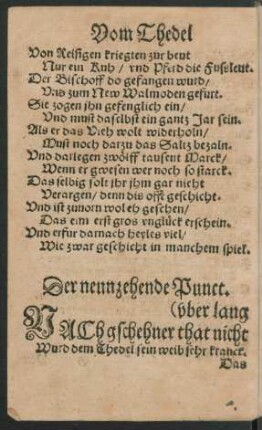 Vom Thedel
Von Reisigen kriegten zur beut
Nur ein Kuh / vnd Pferd die Fusleut.
Der Bischoff do gefangen wurd /
Vnd zum New Walmoden gefurt.
Sie zogen jhn gefenglich ein /
Vnd must daselbst ein gantz Jar sein.
Als er das Vieh wolt widerholn /
Must noch darzu das Saltz bezaln.
Vnd darlegen zwölff tausent Marck /
Wenn er gwesen wer noch so starck.
Das selbig solt jhr jhm gar nicht
Verargen / denn dis offt geschicht.
Vnd ist zuuorn wol eh geschen /
Das ein erst gros vnglück erschein.
Vnd erfur darnach heyles viel /
Wie zwar geschicht in manchem spiel.
Der neunzehende Punct.
(vber lang
NACh gschehner that nicht
Wurd dem Thedel sein weib sehr kranck.
Das